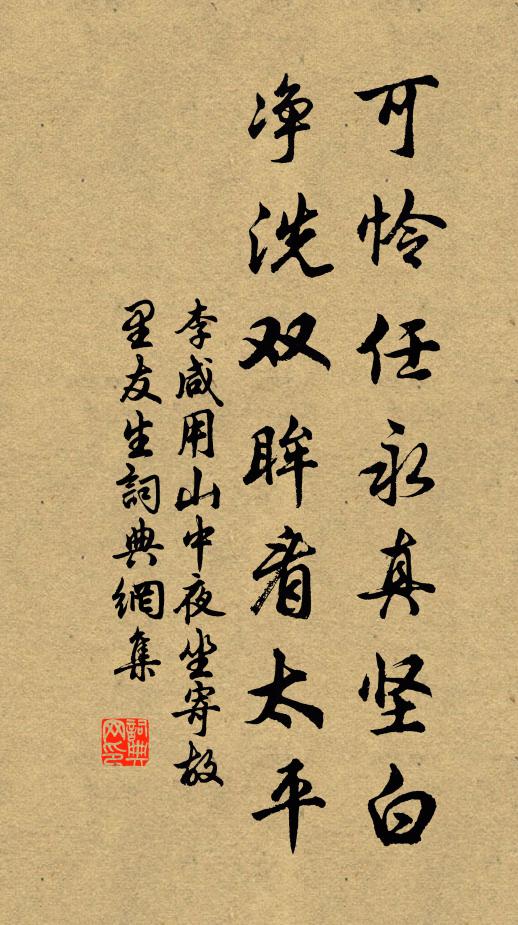 可怜任永真坚白
净洗双眸看太平
李咸用山中夜坐寄故
里友生詞典網集
詞典
网印